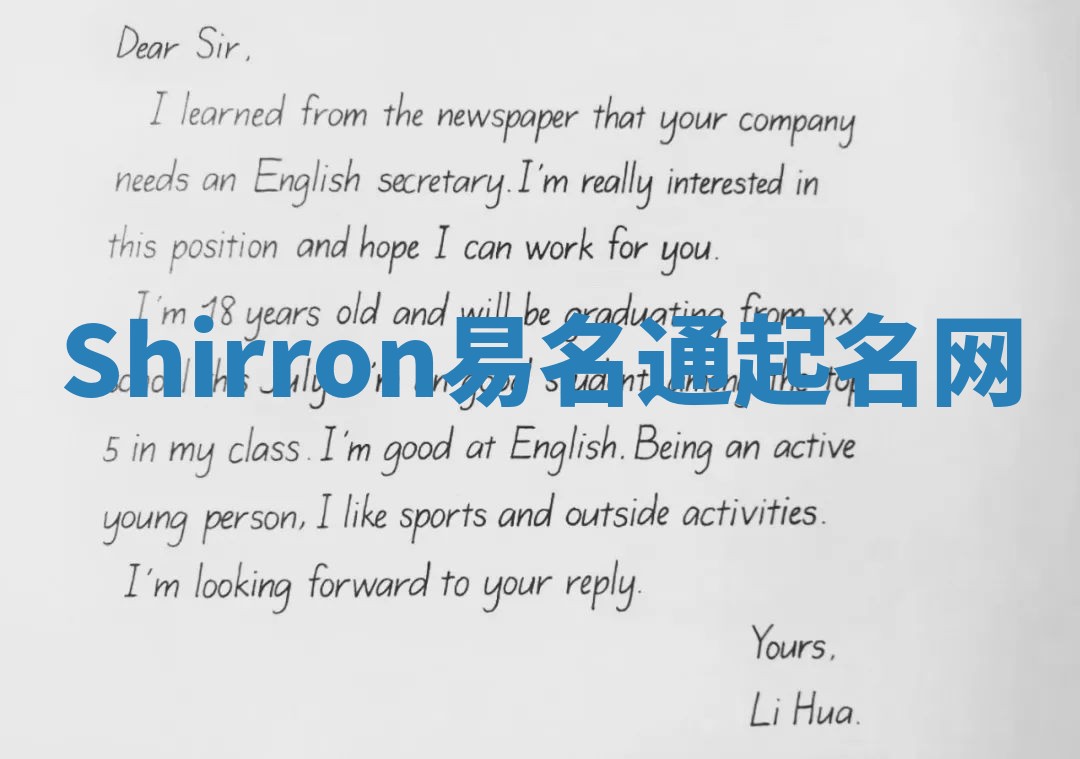 Dear Sir,
I learned from the newspaper that your company
needs an English secretary. I'm really interested in
this position and hope I can work for you.
I'm 18 years old and will be graduating from xx
Shirron易名通起名网
school this July. I'm an good student among the top
5 in my class. I'm good at English. Being an active
young person, I like sports and outside activities.
I'm looking forward to your reply.
Yours,
Li Hua.